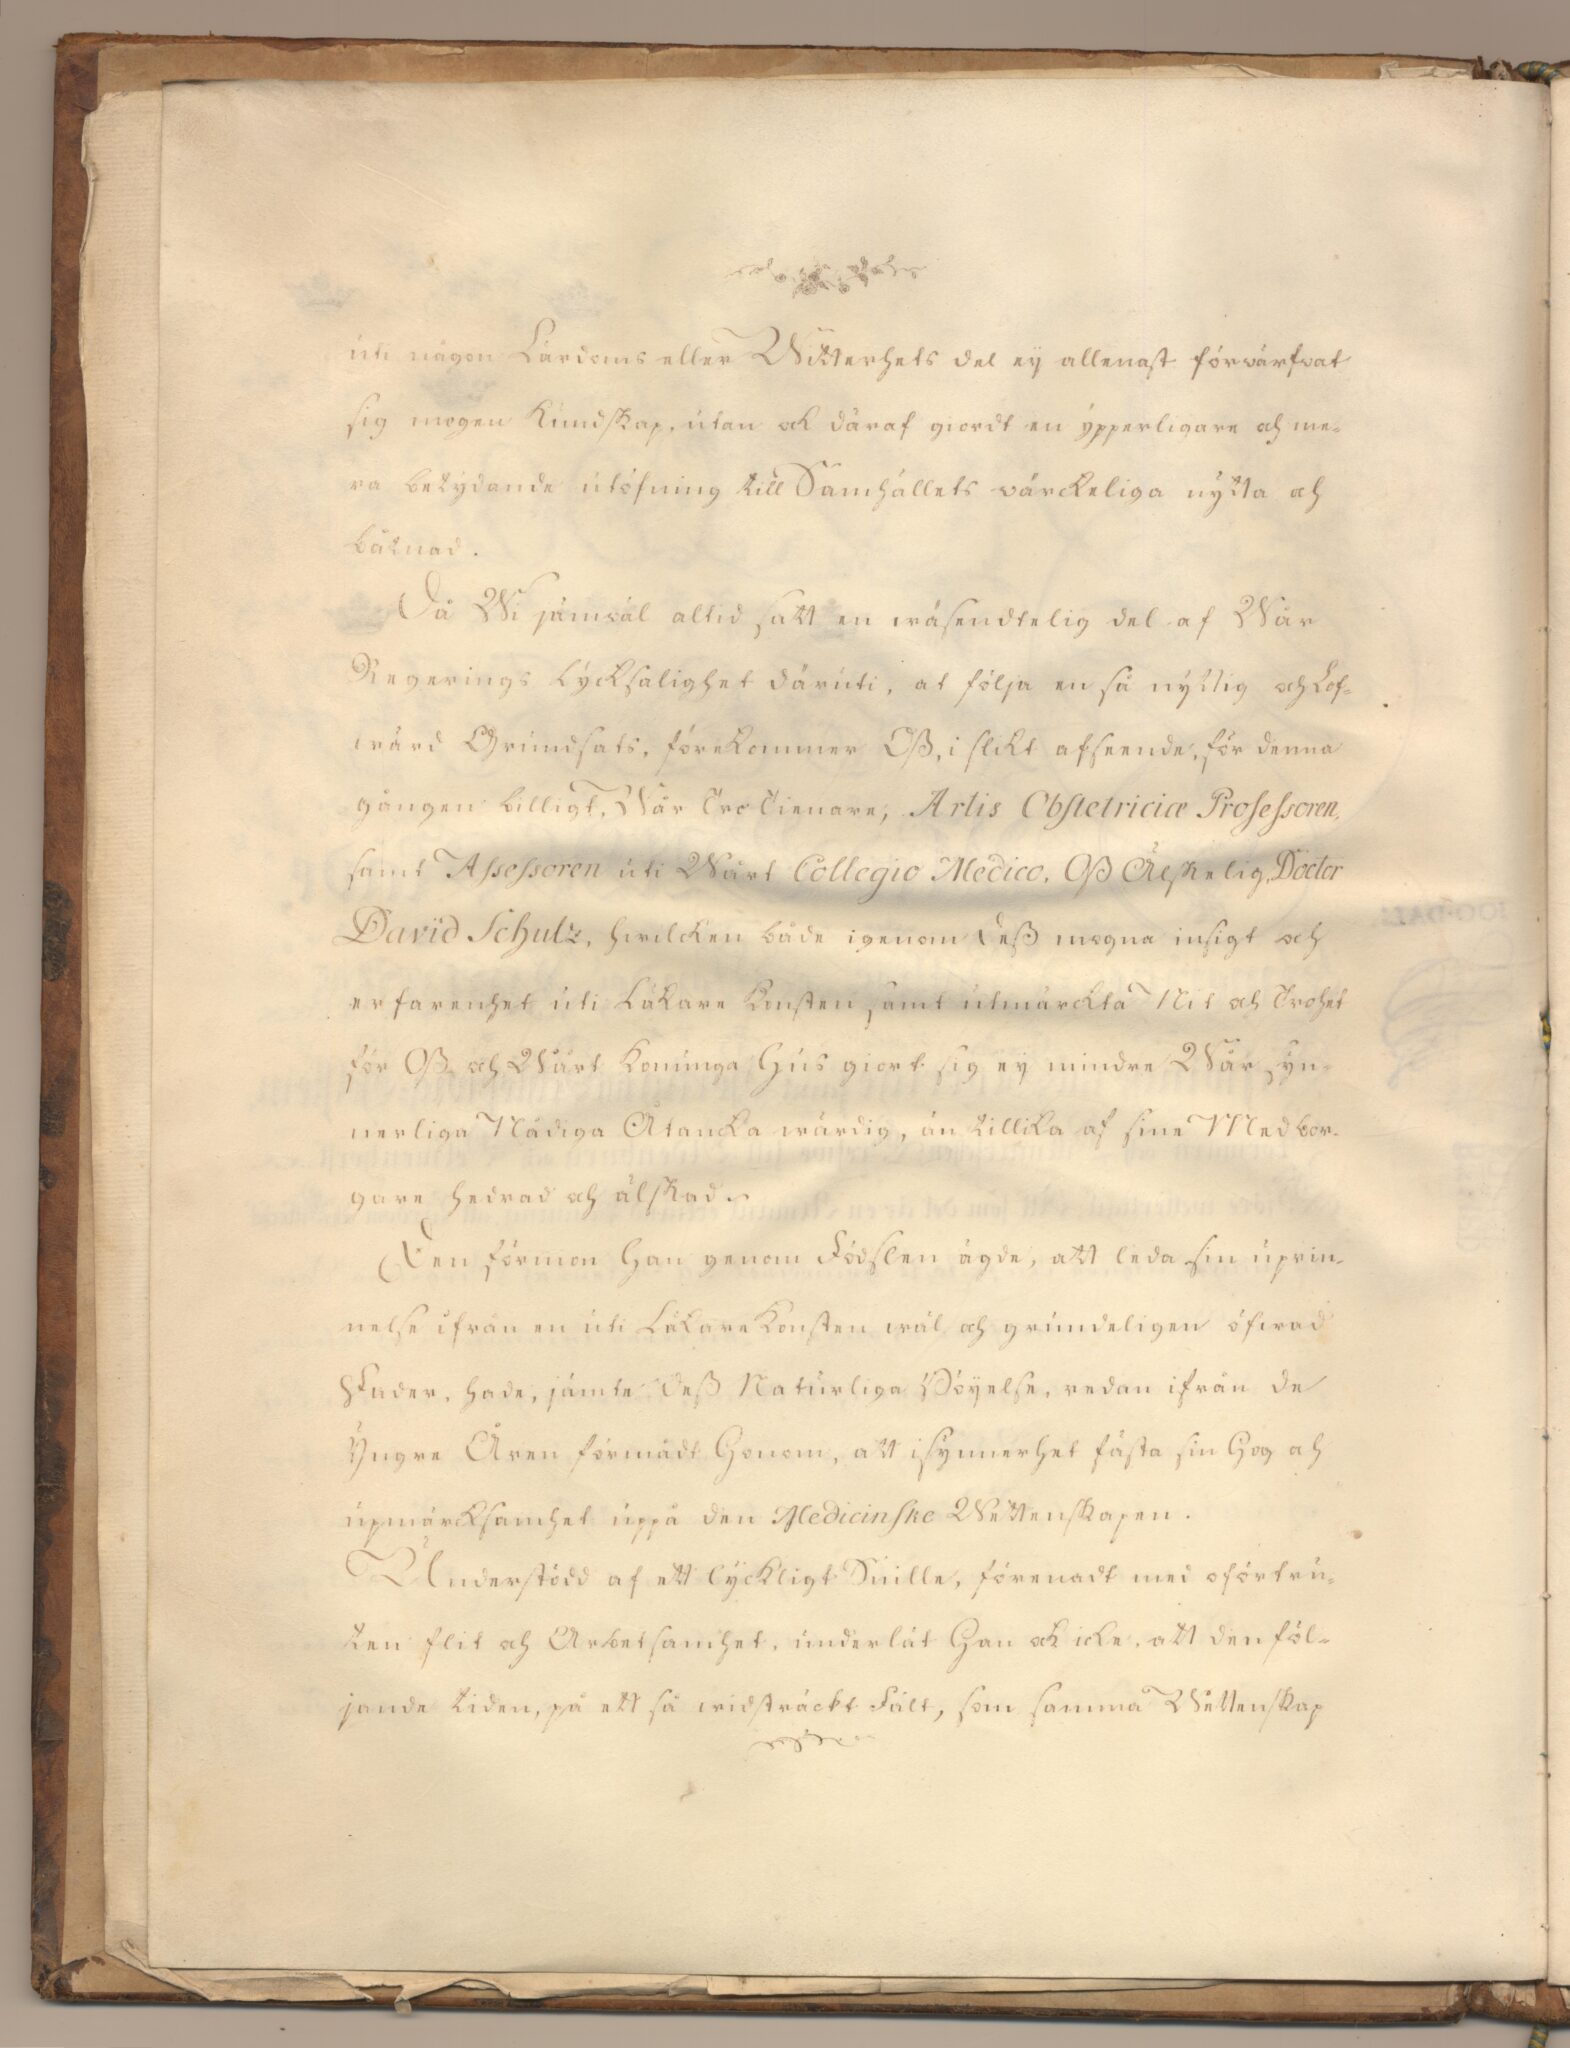 uti någon Lärdoms eller Witterhets del ey allenast förvärfvat
sig mogen Kundskap, utan ock däraf giordt en ypperligare och me-
ra betydande utöfning till Samhällets värckeliga nytta och
båtnad.
Då Wi jämväl altid satt en wäsendtelig del af Wår
Regerings Lycksalighet däruti, at följa en så nyttig och Lof-
wärd Grundsats, förekommer Oß, i slikt afseende, för denna
gången billigt, Wår Tro Tienare, Artis Obstetriciæ Professoren,
samt Assessoren uti Wårt Collegio Medico, Oß Älskelig, Doctor
David Schulz, hwilcken både igenom Deß mogna insigt och
erfarenhet uti Läkare Konsten samt utmärckta Nit och Trohet
för Oß och Wårt Konunga Hus giort sig ey mindre Wår syn-
nerliga Nådiga Åtancka wärdig, än tillika af sine Medbor-
gare hedrad och älskad.
Den förmon Han genom Födslen ägde, att leda sin uprin-
nelse ifrån en uti Läkare Konsten wäl och grundeligen öfwad
Fader, hade, jämte Deß Naturliga Böyelse, redan ifrån de
Yngre Åren förmådt Honom, att isynnerhet fästa sin Hog och
upmärcksamhet uppå den Medicinske Wettenskapen.
Understödd af ett lyckligt Snille, förenadt med oförtru-
ten flit och Arbetsamhet, underlät Han ock icke, att den föl-
jande tiden, på ett så widsträckt Fält, som samma Wettenskap